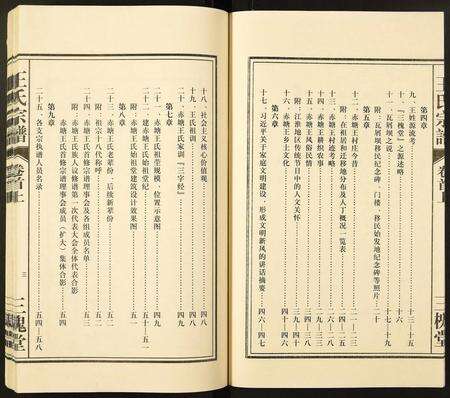 王氏宗谱
卷首上
三槐堂
第四章
九、王姓源流考
十、『三槐堂』之源述略
十一、瓦屑坝之设
附:瓦屑坝移民纪念碑、门楼、移民始发地纪念碑等照片
二十
第五章
十二、赤塘王村古今
附:在祖居和迁移地分布及人丁概况一览表
十三、赤塘王村迹考略
十四、赤塘王耕织农事
十五、赤塘王风俗民情
附:江淮地区传统节日中的人文关怀
十六、赤塘王乡土文化
十七、习近平关于家庭文明建设、形成文明新风的讲话摘要
四六
四七
十八、社会主义核心价值观
四八
十九、王氏祖训
四八
二十、赤塘王氏家训『三字经』
四九
第七章
二十一、赤塘王氏祖茔规模、位置示意图
四九
二十二、建赤塘王氏始祖堂纪
五十
五一
附:赤塘王氏始祖堂建筑设计效果图
第八章
二十三、赤塘王氏老派份、后续新派份
五二
附:祖宗十八代名称呼
二十四、赤塘王氏首修宗谱理事会及各组成员名单
五三
附:赤塘王氏族人议修谱第一次代表大会全体代表合影
赤塘王氏首修宗谱理事会成员(扩大)集体合影
五四
第九章
二十五、各支宗执谱人员名录
五四
五八
王氏宗谱
卷首上
三
三槐堂